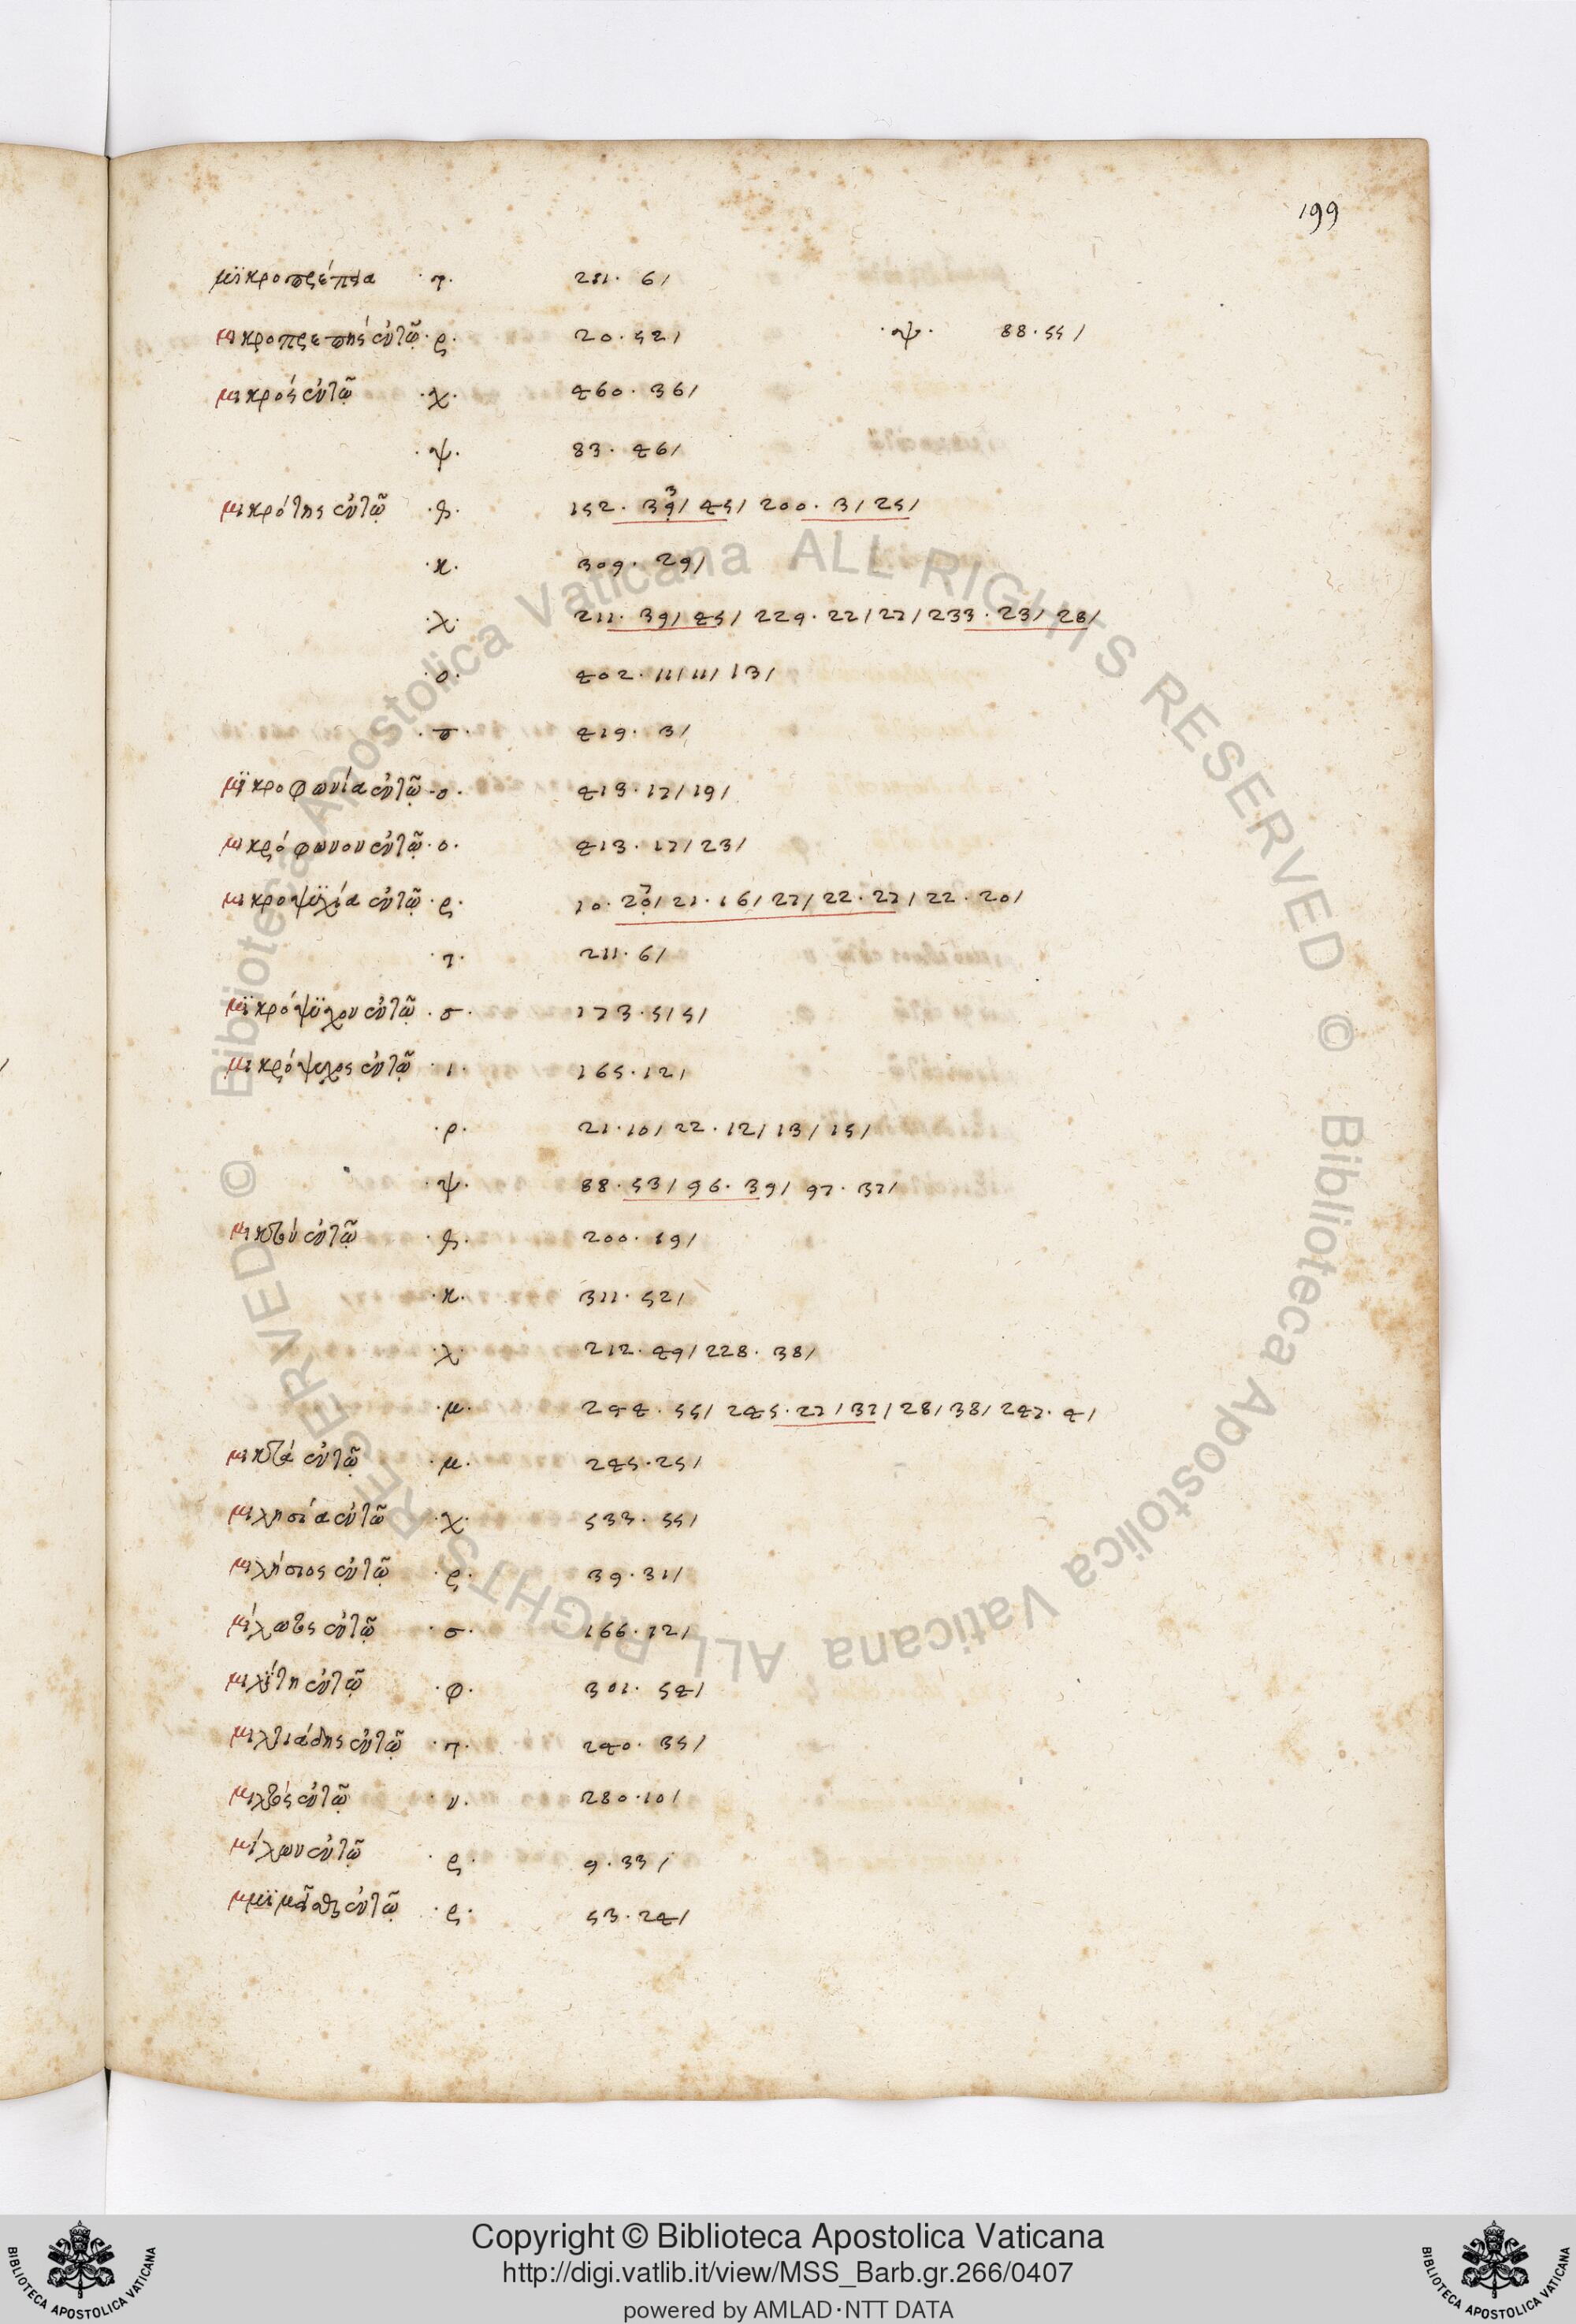 199
μϊκροπρέπεια ·τ· 211 · 6/
μικροπρεπής ἐν τῷ · ρ · 20 · 52/ · ψ · 88 · 55/
μικρός ἐν τῷ · χ · 460 · 36/
· ψ · 83 · 46/
μικρότης ἐν τῷ 152 · 39/ 45/ 200 · 3/ 25/
· κ · 309 · 29/
· λ · 211 · 39/ 45/ 229 · 22/ 27/ 233 · 23/ 28/
· ο · 402 · 11/ 11/ 13/
· π · 419 · 3/
μϊκροφωνία ἐν τῷ · ο · 413 · 17/ 19/
μικρόφωνον ἐν τῷ · ο · 413 · 17/ 23/
μικροψϋχία ἐν τῷ · ρ · 10 · 20/ 21 · 16/ 27/ 22 · 27/ 22 · 20/
· τ · 211 · 6/
μϊκρόψϋχον ἐν τῷ · σ · 173 · 5/ 5/
μικρόψυχος ἐν τῷ · ι · 165 · 12/
· ρ · 21 · 10/ 22 · 12/ 13/ 15/
· ψ · 88 · 53/ 96 · 39/ 97 · 37/
μικτόν ἐν τῷ 200 · 19/
· κ · 311 · 52/
· λ · 212 · 49/ 228 · 38/
· μ · 244 · 55/ 245 · 27/ 37/ 28/ 38/ 247 · 4/
μικτά ἐν τῷ · μ · 245 · 25/
μιλησία ἐν τῷ · χ · 533 · 55/
μιλήσιος ἐν τῷ · ρ · 39 · 31/
ἐν τῷ · σ · 166 · 12/
ἐν τῷ · φ · 301 · 54/
μιλτιάδης ἐν τῷ · τ · 240 · 35/
ἐν τῷ · ν · 280 · 10/
μίλων ἐν τῷ · ρ · 9 · 33/
ἐν τῷ · ρ · 53 · 24/
Copyright © Biblioteca Apostolica Vaticana
http://digi.vatlib.it/view/MSS_Barb.gr.266/0407
powered by AMLAD·NTT DATA
BIBLIOTECA APOSTOLICA VATICANA
BIBLIOTECA APOSTOLICA VATICANA
© Biblioteca Apostolica Vaticana ALL RIGHTS RESERVED
© Biblioteca Apostolica Vaticana ALL RIGHTS RESERVED